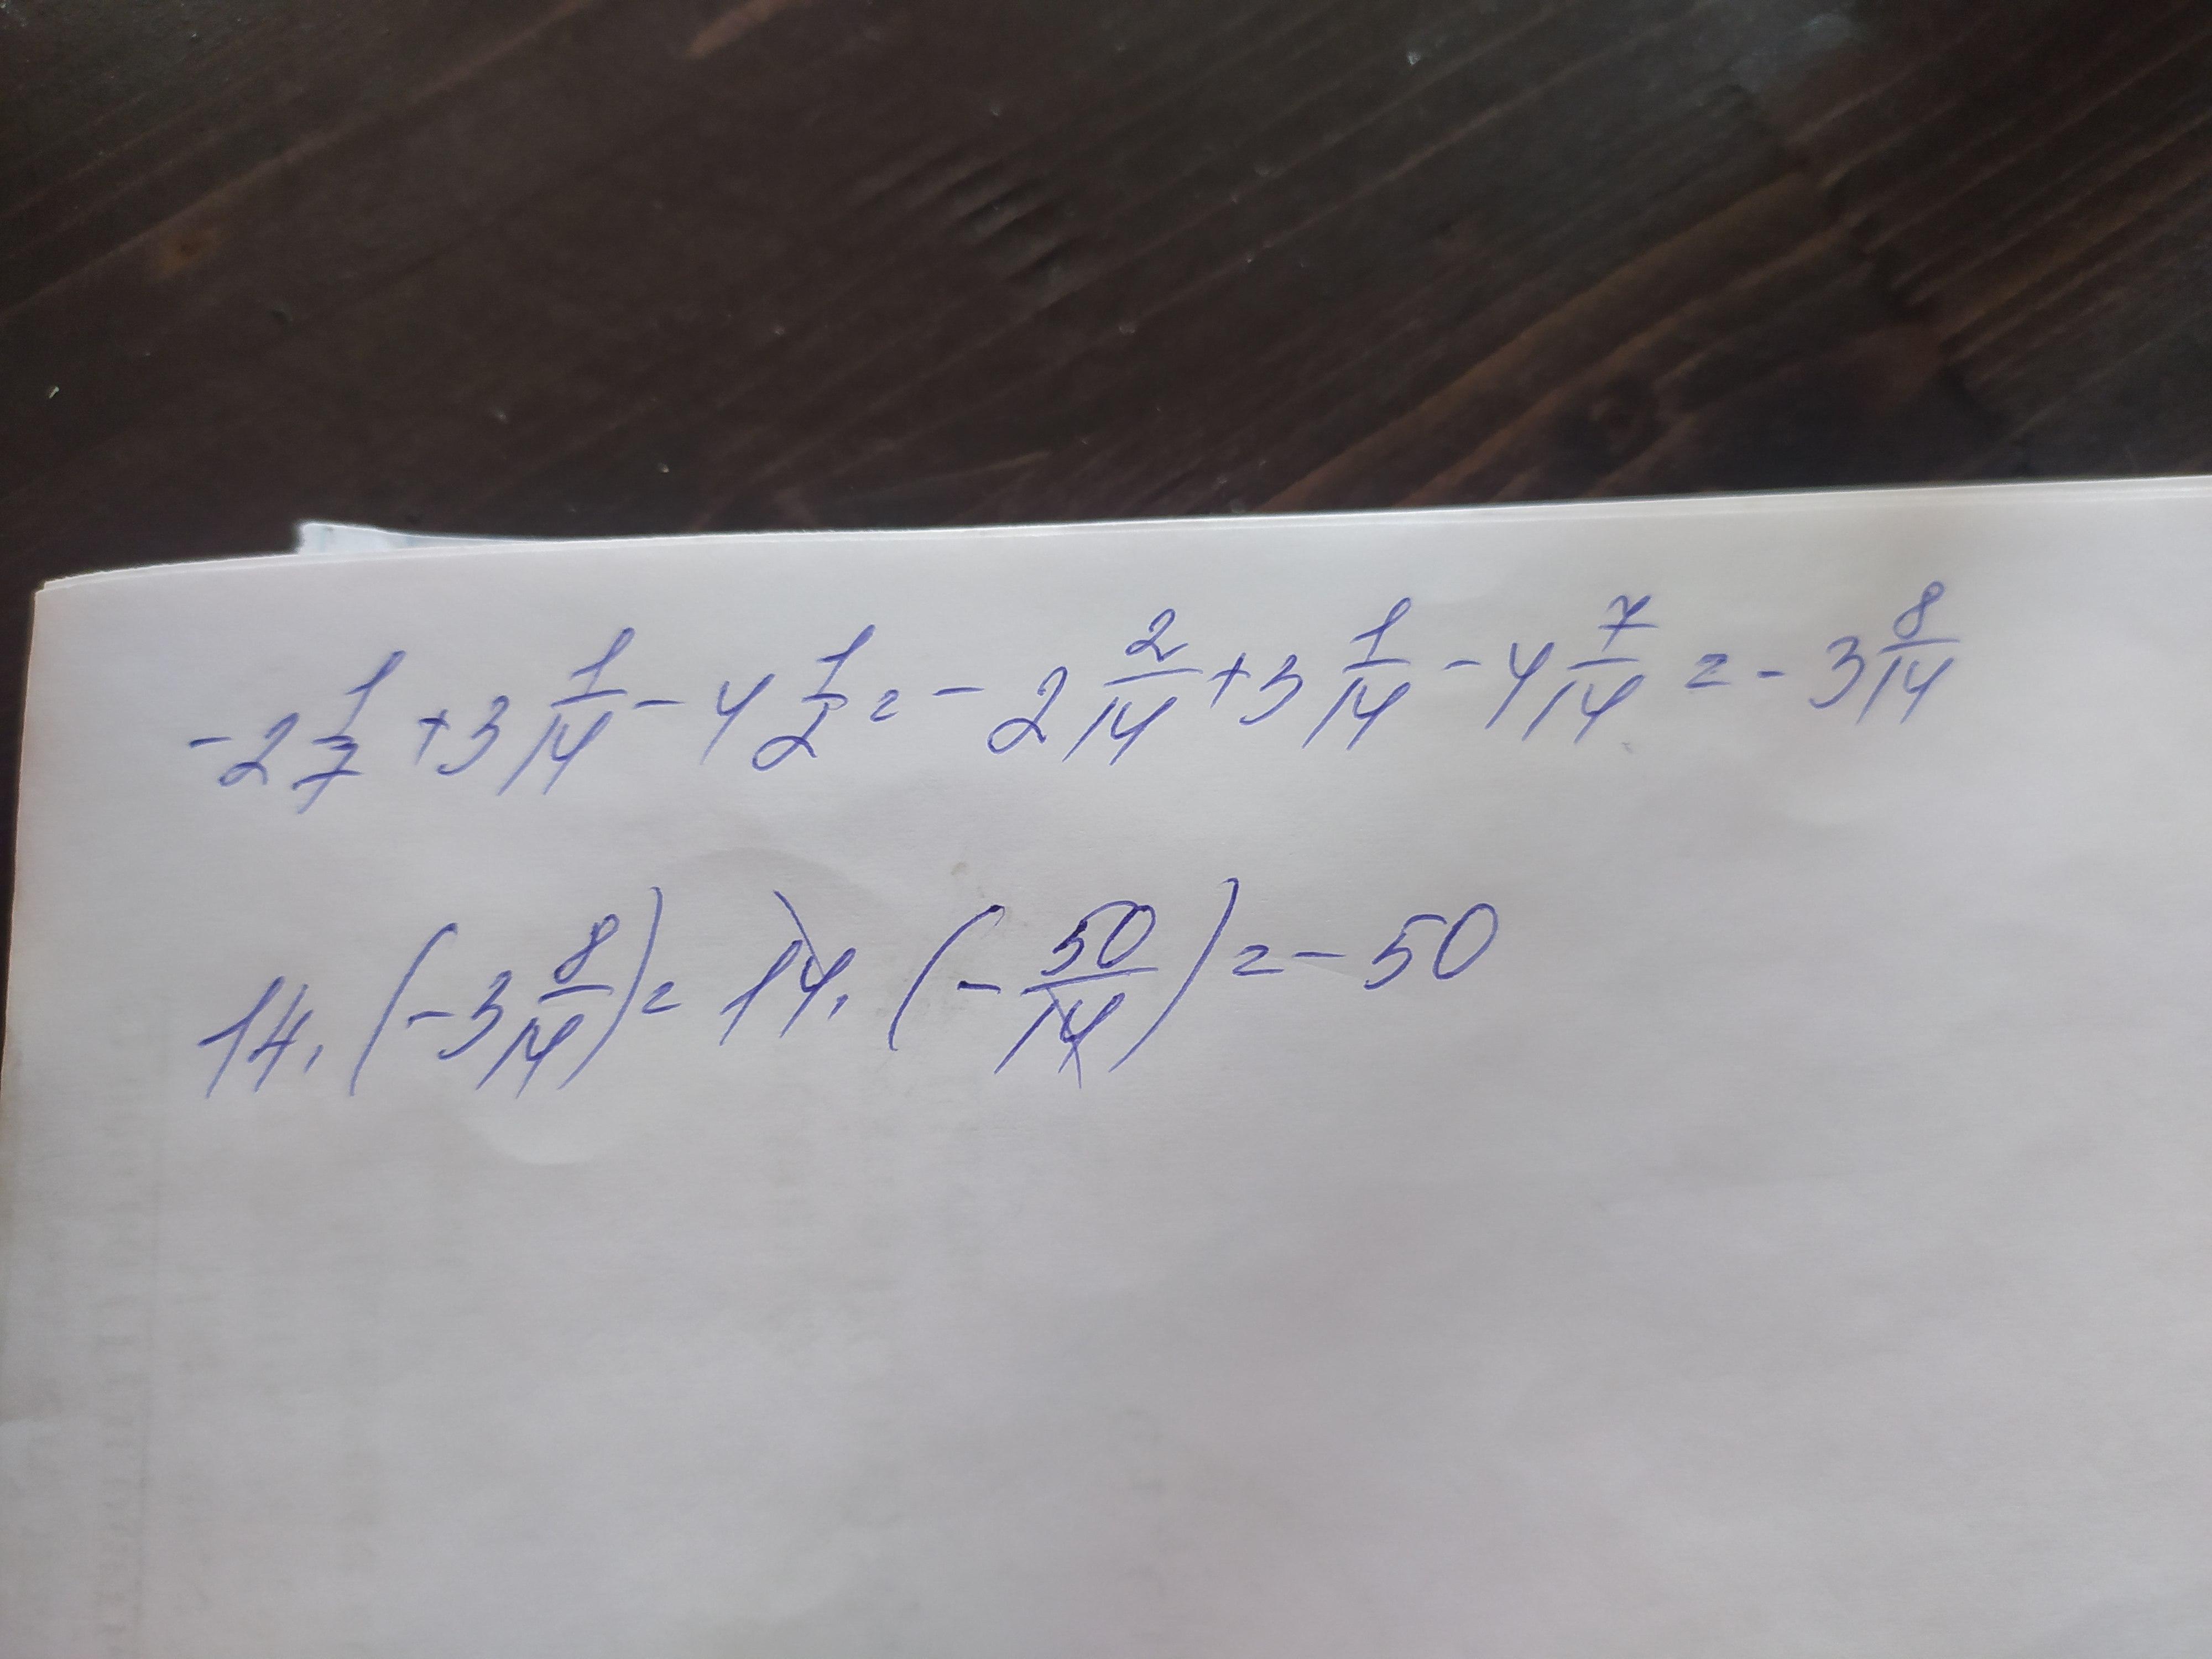 -2 1/7 + 3 1/14 - 4 1/2 = -2 2/14 + 3 1/14 - 4 7/14 = -3 8/14
14 · (-3 8/14) = 14 · (-50/14) = -50